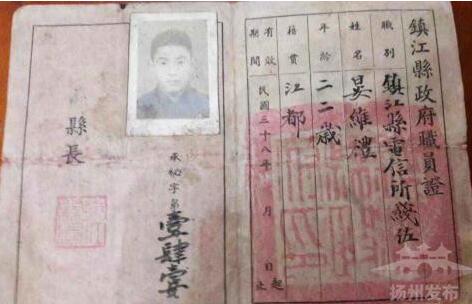 鎮江縣政府職員證
職別 鎮江縣電信所綫伍
姓名 晏維澧
年齡 二二歲
籍貫 江都
有效期間 民國三十八年 月 日起止
承祕字第壹肆壹
縣長
扬州发布